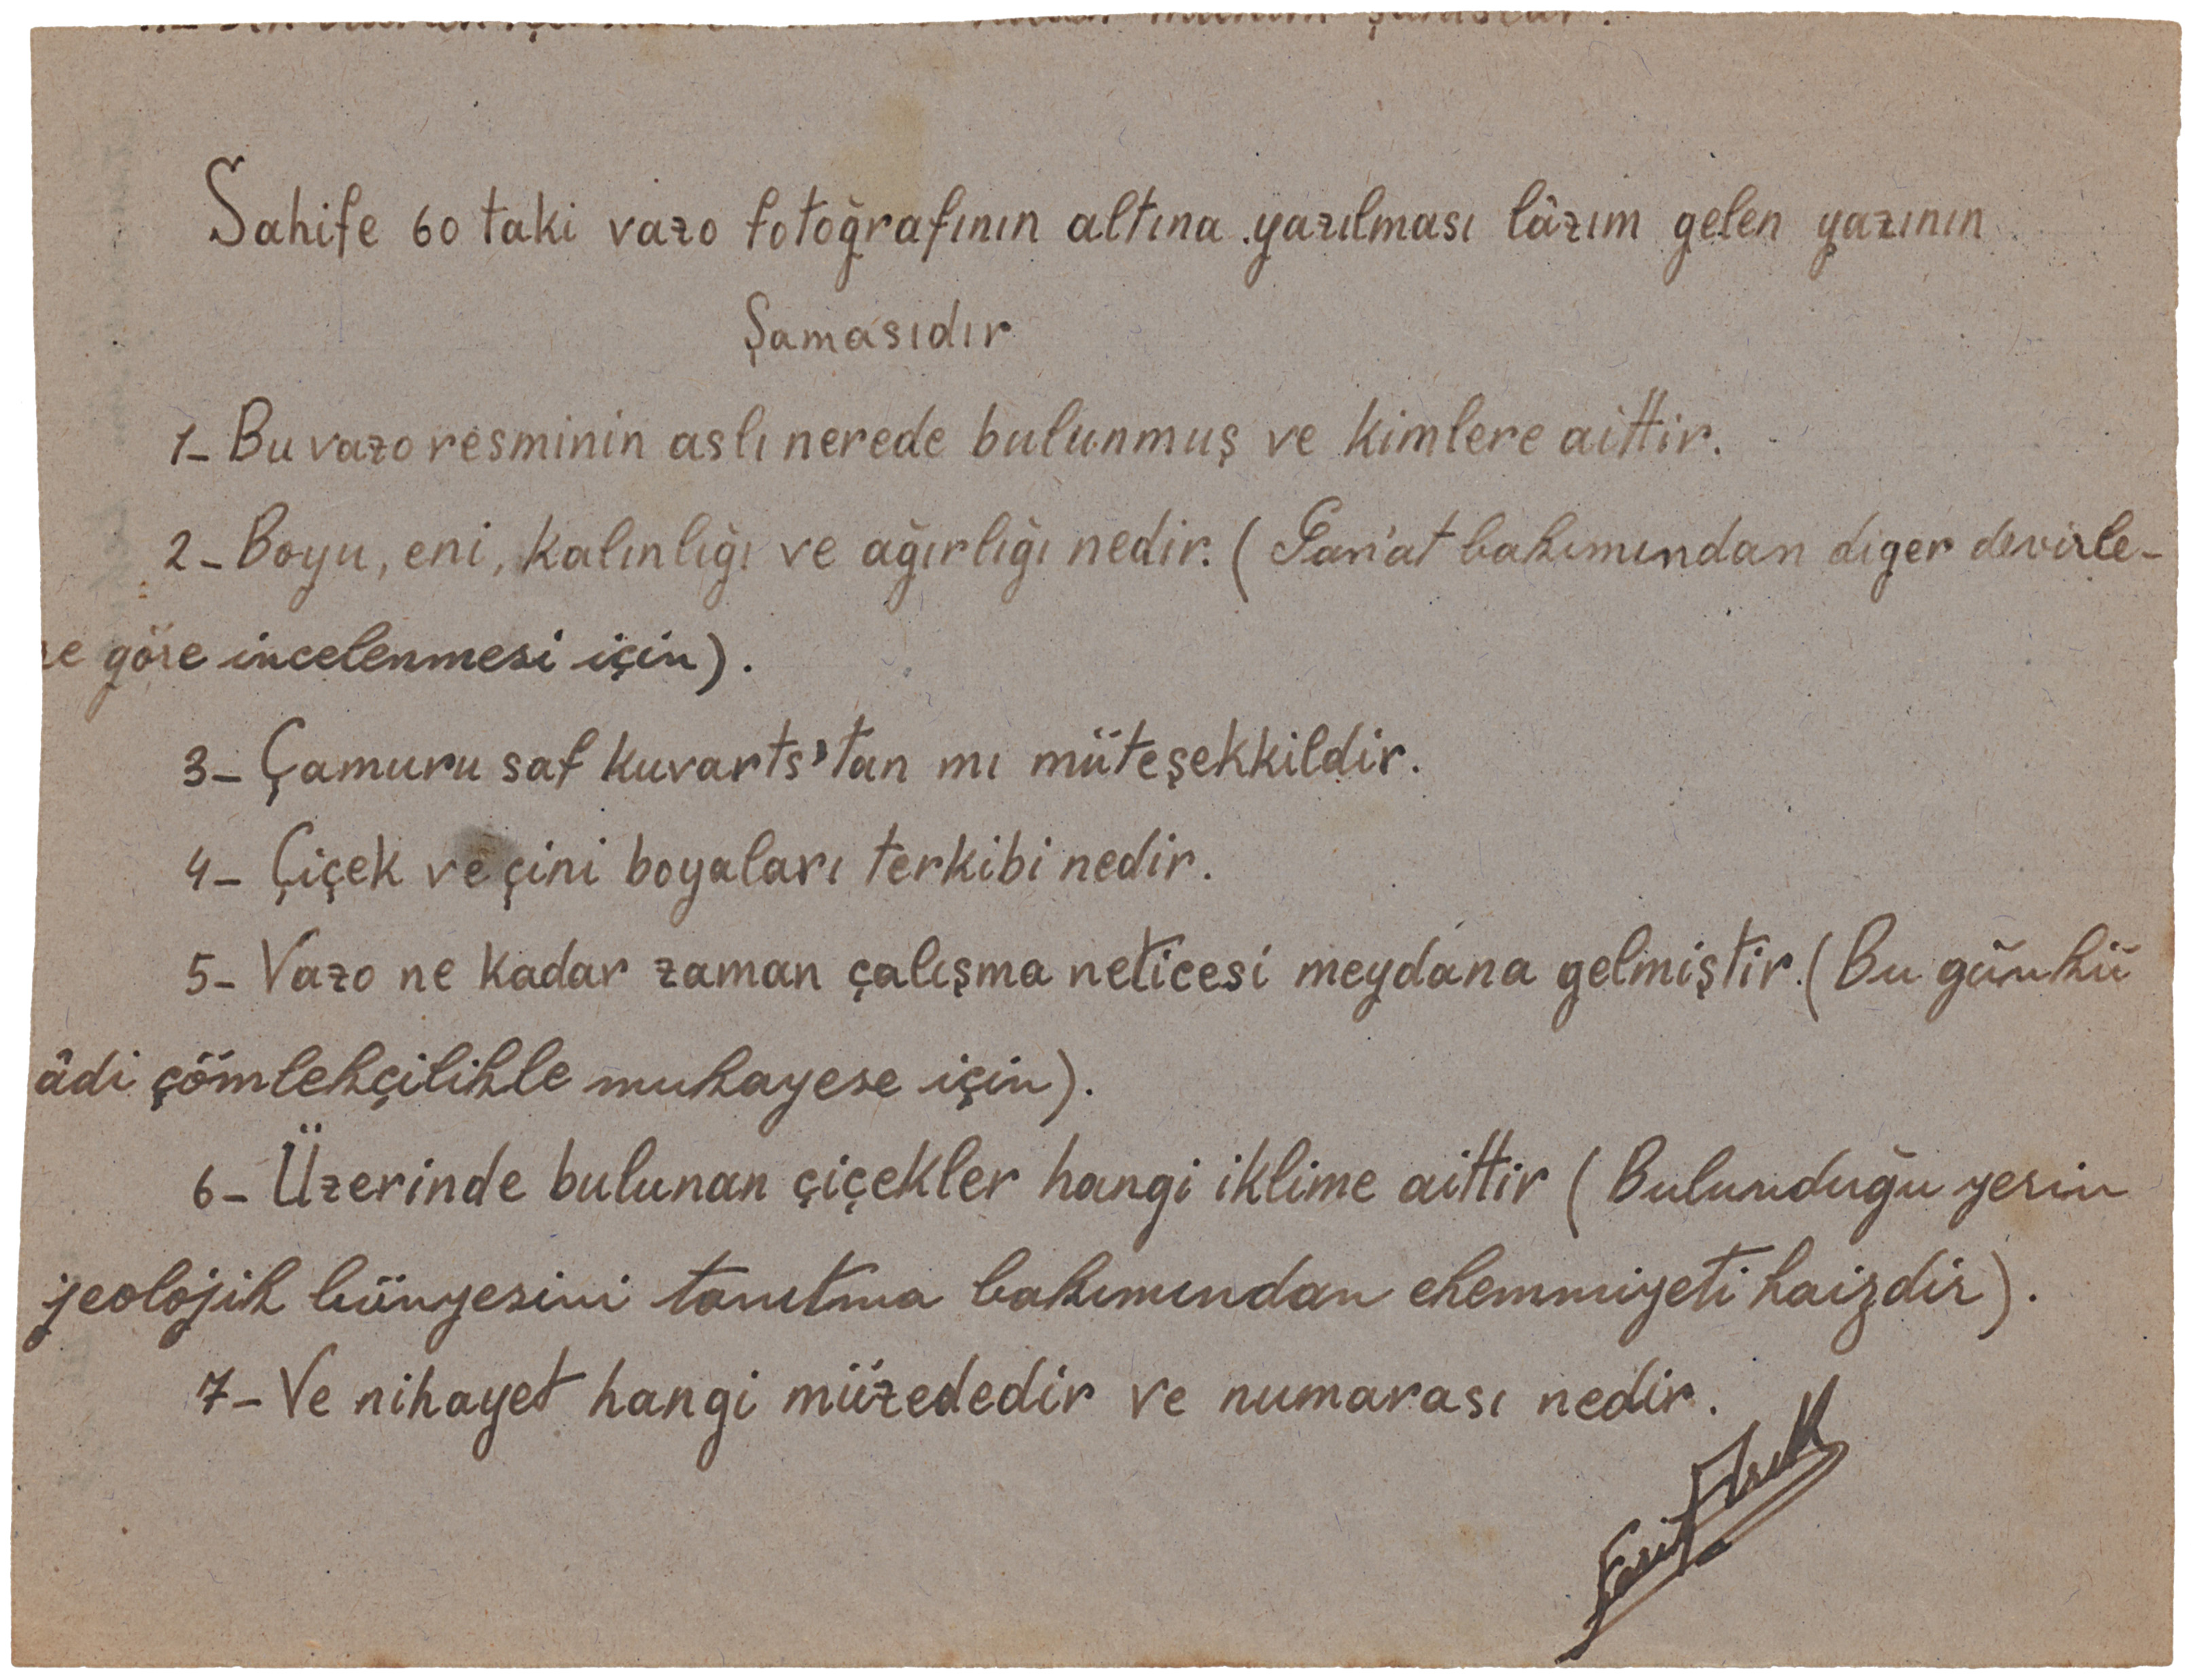 Sahife 60 taki vazo fotoğrafının altına yazılması lâzım gelen yazının
Şamasıdır
1- Bu vazo resminin aslı nerede bulunmuş ve kimlere aittir.
2- Boyu, eni, kalınlığı ve ağırlığı nedir. (San'at bakımından diger devirle-
re göre incelenmesi için).
3- Çamuru saf kuvarts'tan mı müteşekkildir.
4- Çiçek ve çini boyaları terkibi nedir.
5- Vazo ne kadar zaman çalışma neticesi meydana gelmiştir. (Bu günkü
âdi çömlekçilikle mukayese için).
6- Üzerinde bulunan çiçekler hangi iklime aittir (Bulunduğu yerin
jeolojik bünyesini tanıtma bakımından ehemmiyeti haizdir).
7- Ve nihayet hangi müzededir ve numarası nedir.